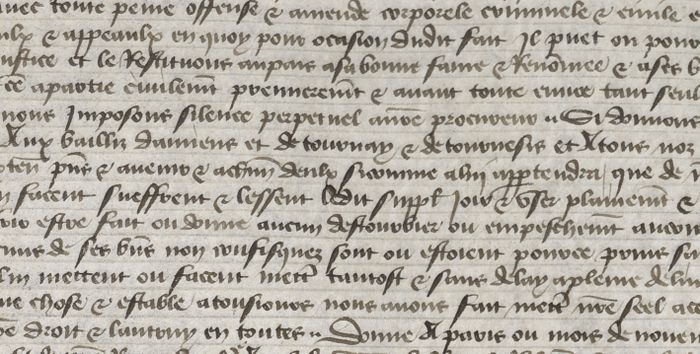 avec toute peine offense & amende corporele criminele & civile
aulx & appeaulx en quoy pour ocasion dudit fait Il puet ou pour
justice et le Restituons au pais a sa bonne fame & Renommee & a ses b
ce a partie civilement premierement & avant toute euvre tant seul
nous Imposons silence perpetuel a nre procureur Si donnons
Aux bailliz damiens et de tournay & de tournesis et A tous noz
pns & avenir & a chun deulx si comme a lui appartendra que de n
facent sueffrent & lessent ledit suppl Joir & user plainement &
estre fait ou donne aucun destourbier ou empeschement aucun
de ses bns non confisquez sont ou estoient pour ce prins
mettent ou facent mettre tantost & sans delay a plene deliv
que chose & estable a tousiours nous avons fait mettre nre seel a ces
droit & lautruy en toutes Donne A paris ou mois de nove